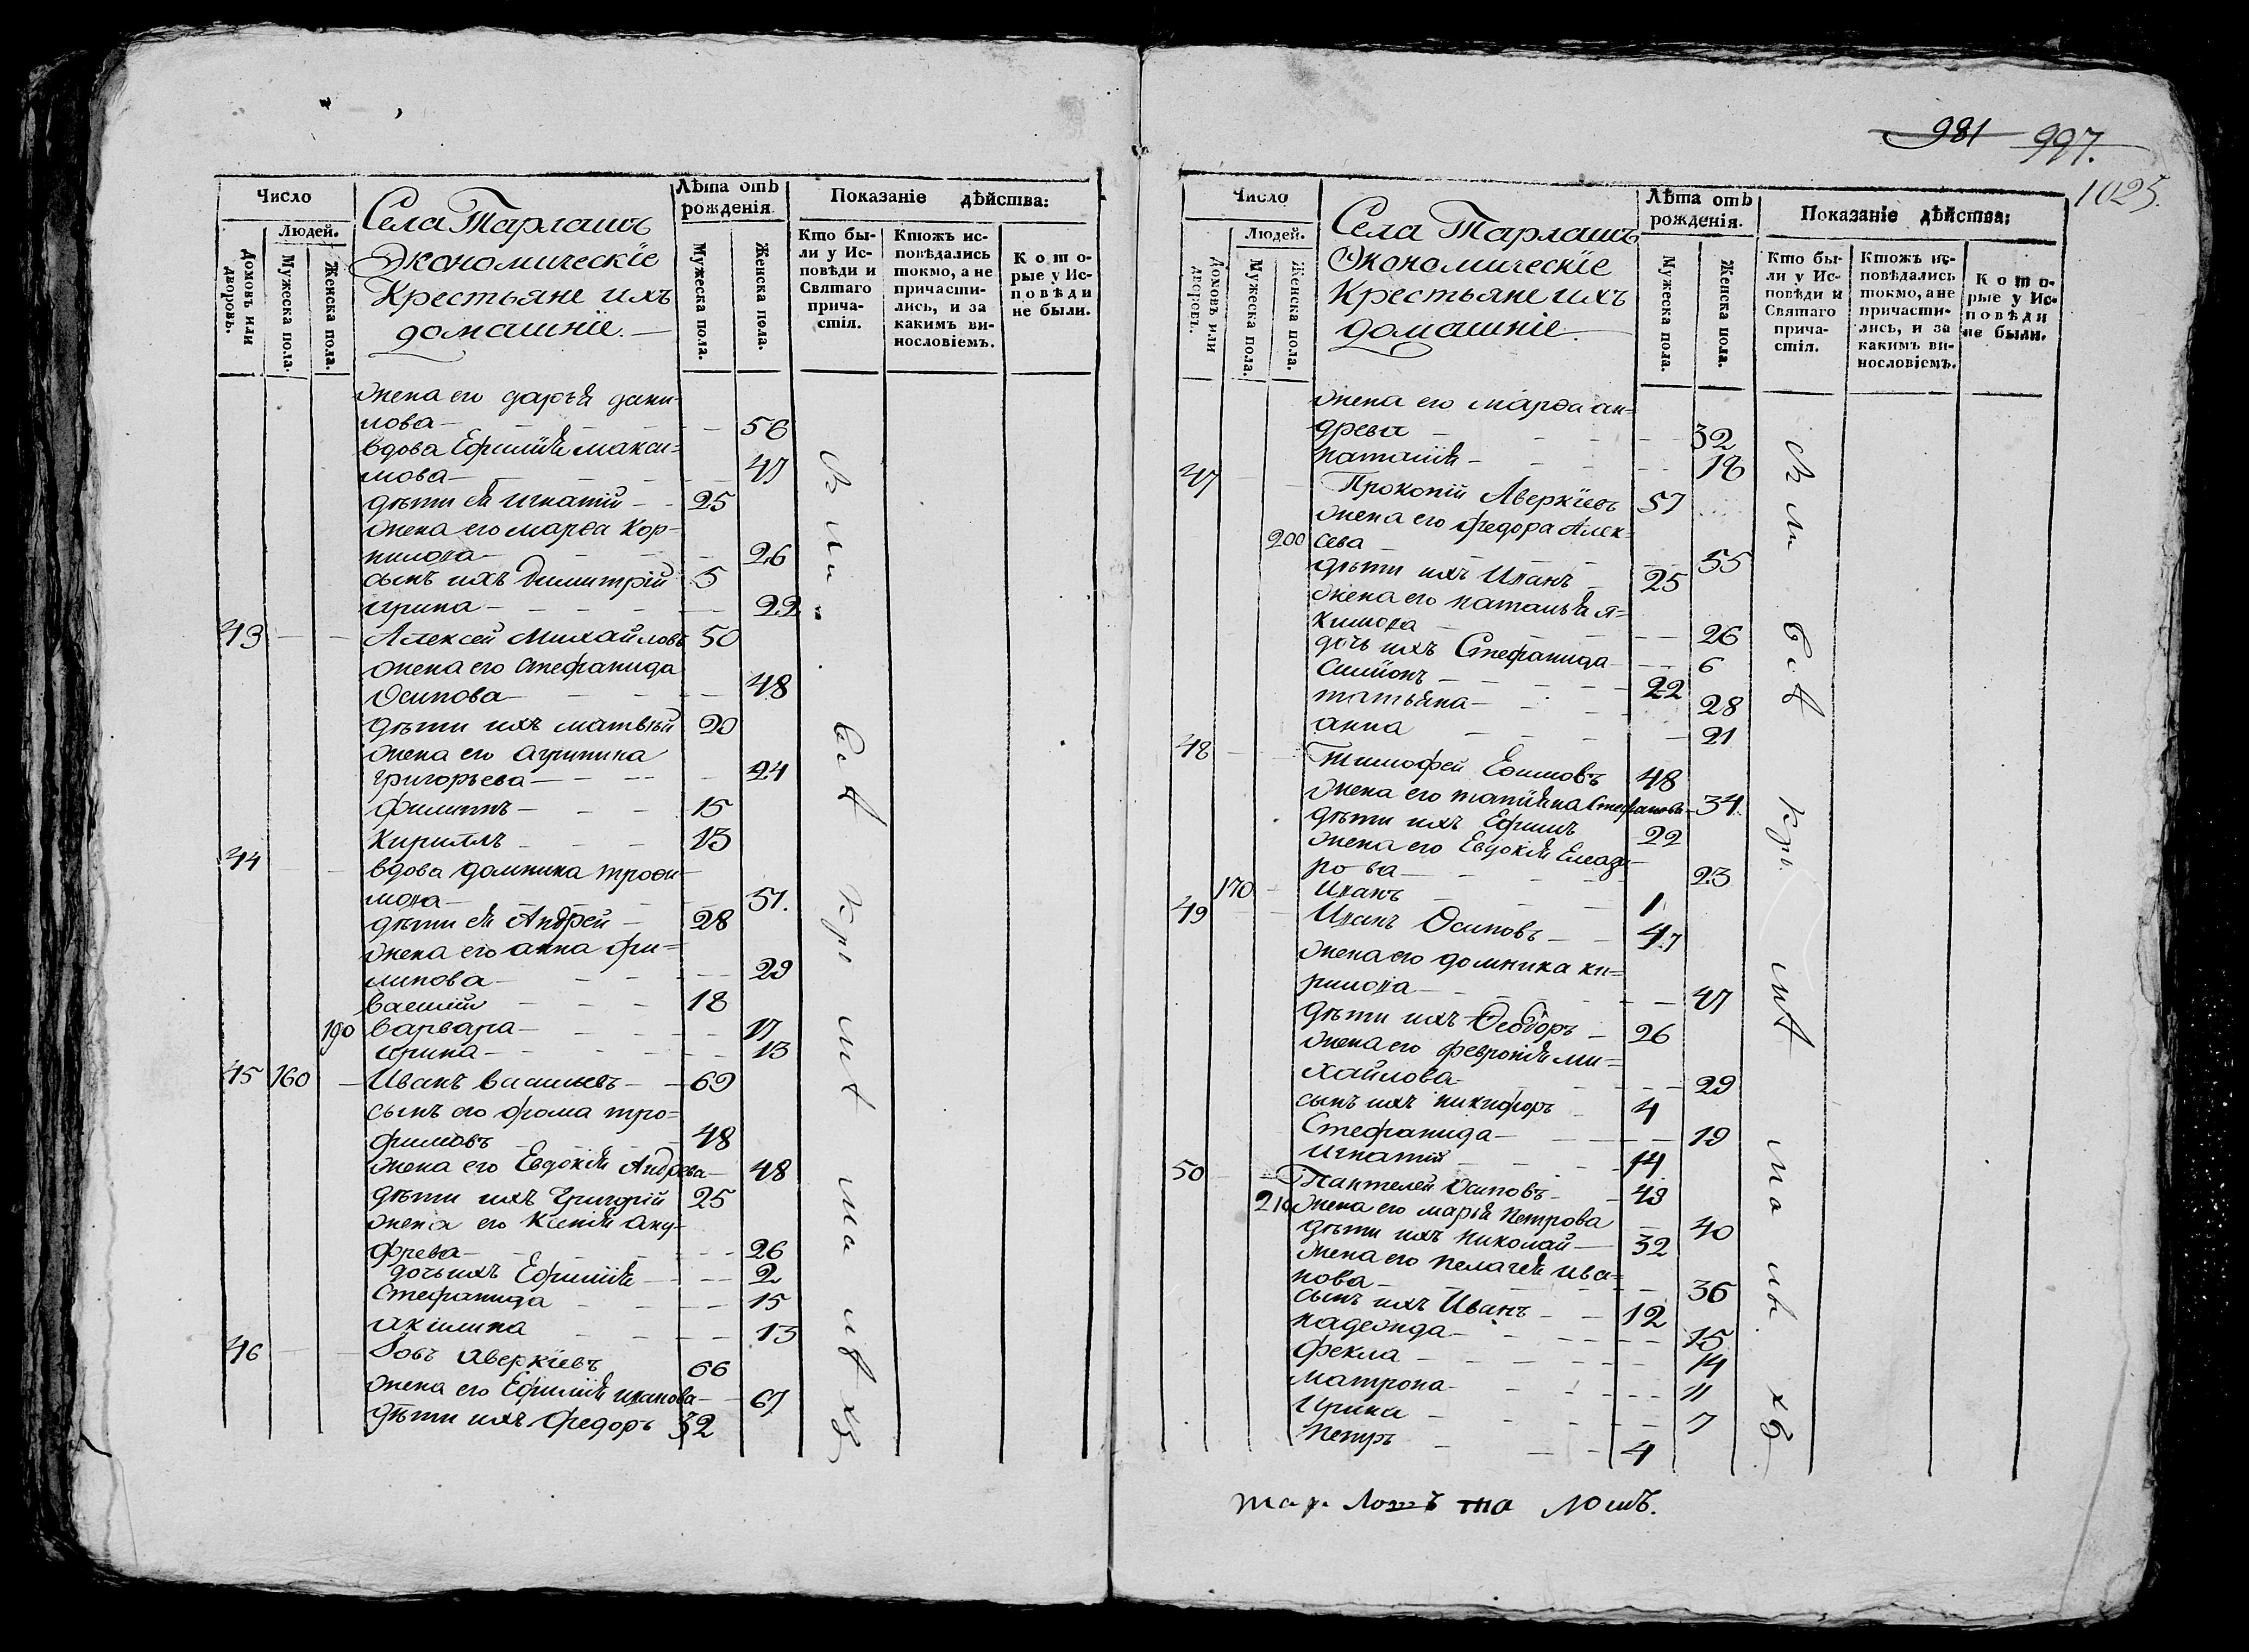 981 997.
1025.
Число
Людей.
Домовъ или дворовъ.
Мужеска пола.
Женска пола.
Села Тарлашъ
Экономическіе
Крестьяне ихъ
домашніе.
Лѣта отъ
рожденія.
Мужеска пола.
Женска пола.
Показаніе дѣйства:
Кто бы-
ли у Ис-
повѣди и
Святаго
прича-
стія.
Ктожъ ис-
повѣдались
токмо, а не
причасти-
лись, и за
какимъ ви-
нословіемъ.
Кото-
рые у Ис-
повѣди
не были.
жена его дарья дани-
лова 56
вдова Ефимія макси-
мова 47
дѣти ея игнатій 25
жена его марѳа кор-
нилова 26
сынъ ихъ димитрій 5
ирина 22
43 Алексей Михайловъ 50
жена его стефанида
Осипова 48
дѣти ихъ матвѣй 20
жена его агрипина
григорьева 24
филиппъ 15
кириллъ 13
44 вдова домника трофи-
мова 51.
дѣти ея Андрей 28
жена его анна фи-
липова 29
василій 18
190 варвара 17
ирина 13
45 160 Иванъ васильевъ 69
сынъ его фома тро-
фимовъ 48
жена его Евдокія Андрева 48
дѣти ихъ Григорій 25
жена его Ксенія ану-
фрева 26
дочь ихъ Ефимія 2
стефанида 15
акилина 13
46 Іовъ аверкіевъ 66
жена его Ефимія иванова 67
дѣти ихъ федоръ 32
Число
Людей.
Домовъ или дворовъ.
Мужеска пола.
Женска пола.
Села Тарлашъ
Экономическіе
Крестьяне ихъ
домашніе.
Лѣта отъ
рожденія.
Мужеска пола.
Женска пола.
Показаніе дѣйства:
Кто бы-
ли у Ис-
повѣди и
Святаго
прича-
стія.
Ктожъ ис-
повѣдались
токмо, а не
причасти-
лись, и за
какимъ ви-
нословіемъ.
Кото-
рые у Ис-
повѣди
не были.
жена его марѳа ан-
древа 32
наталія 18
47 Прокопій Аверкіевъ 57
жена его федора Алек-
200 сева 55
дѣти ихъ Иванъ 25
жена его наталья я-
кимова 26
дочь ихъ Стефанида 6
симіонъ 22
татьяна 28
анна 21
48 Тимофей Ефимовъ 48
жена его татіяна стефанова 34
дѣти ихъ Ефимъ 22
жена его Евдокія Елеаза-
рова 23
170 Иванъ 1
49 Иванъ Осиповъ 47
жена его домника ки-
рилова 47
дѣти ихъ Ѳеодоръ 26
жена его февронія ми-
хайлова 29
сынъ ихъ никифоръ 4
Стефанида 19
игнатій 14
50 Пантелей Осиповъ 49
210 жена его марья петрова 40
дѣти ихъ николай 32
жена его пелагея ива-
нова 36
сынъ ихъ Иванъ 12
надежда 15
фекла 14
матрона 11
Ирина 7
петръ 4